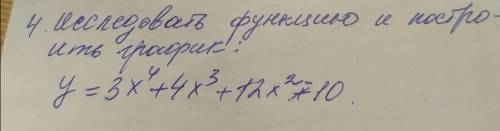 4. Исследовать функцию и постро-
ить график:
y = 3x⁴ + 4x³ + 12x² + 10.